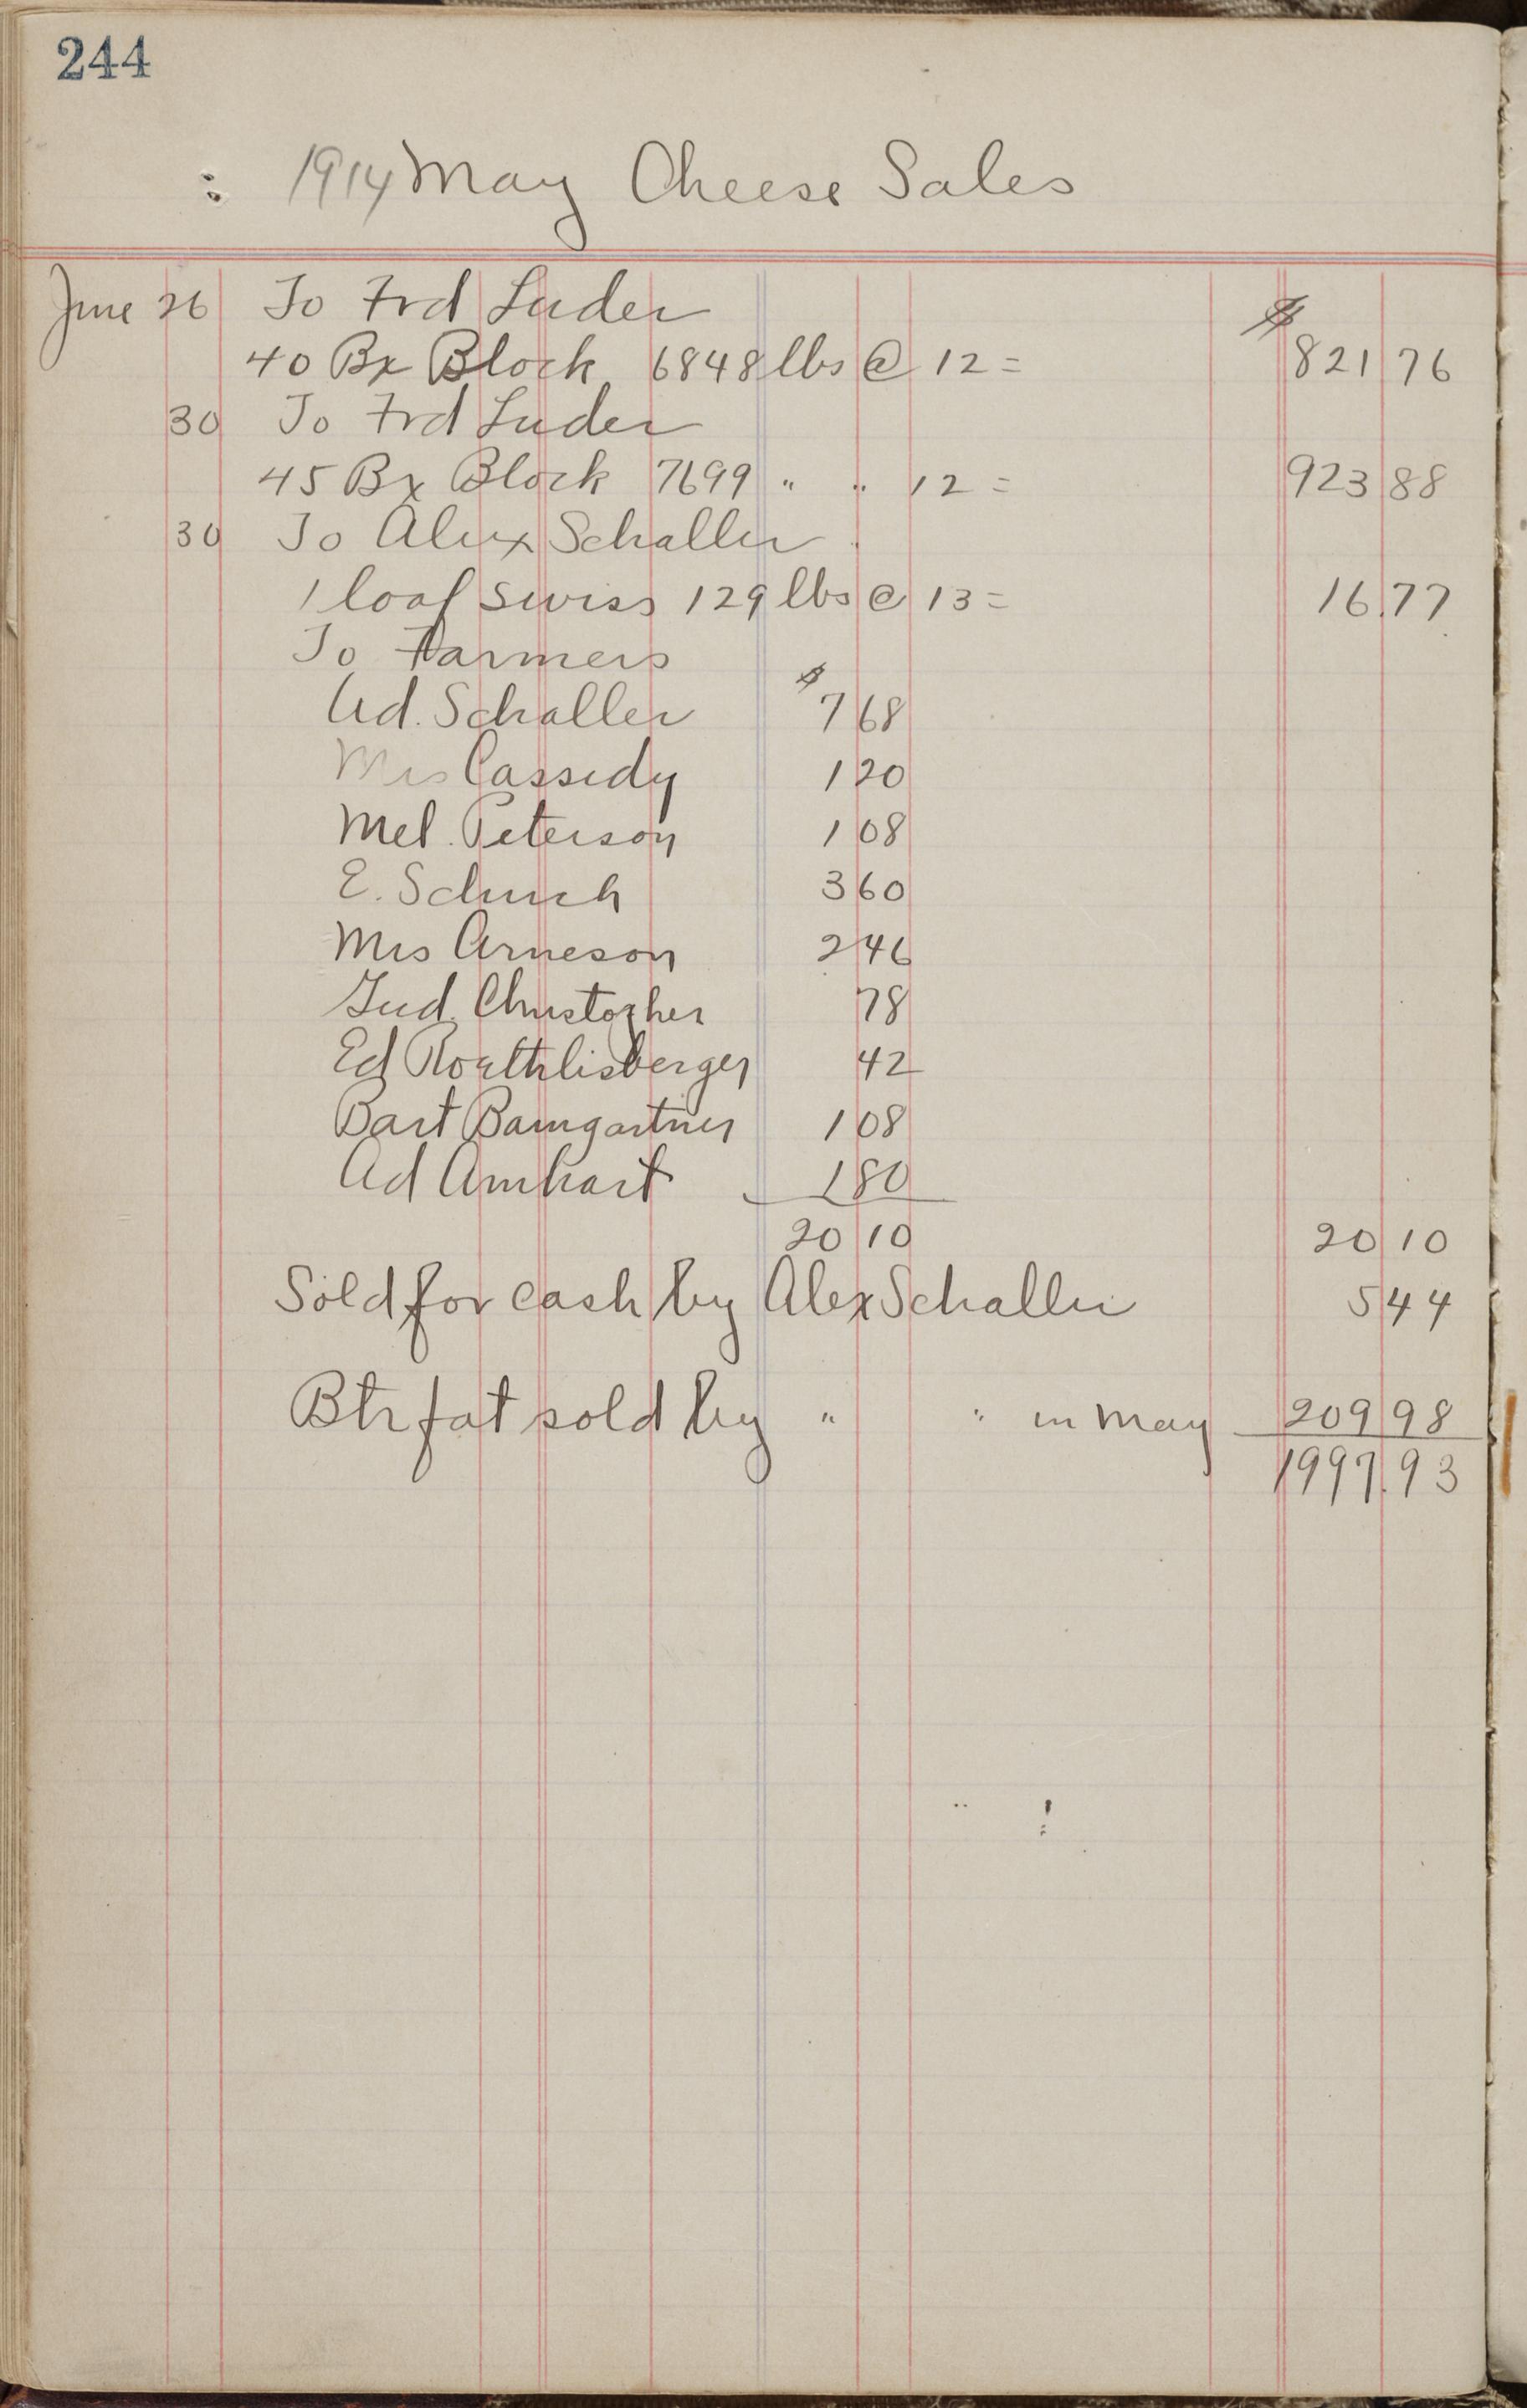 244
1914 May Cheese Sales
June 26 To Frd Luder $
40 Bx Block 6848 lbs @ 12 = 821 76
30 To Frd Luder
45 Bx Block 7699 " " 12 = 923 88
30 To Alex Schaller
1 loaf Swiss 129 lbs @ 13 = 16.77
To Farmers $
Ad. Schaller 7 68
Mrs Cassidy 1 20
Mel. Peterson 1 08
E. Schuch 3 60
Mrs Arneson 2 46
Gud. Christopher 78
Ed Roethlisberger 42
Bart Bamgartner 1 08
Ad Amhart 1 80
20 10 20 10
Sold for cash by Alex Schaller 5 44
Btr fat sold by " " in May 209 98
1997.93